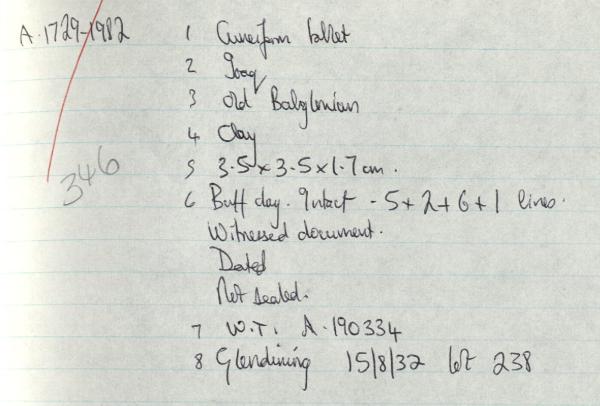 A.1729-1982 1 Cuneiform tablet
2 Iraq
3 Old Babylonian
4 Clay
5 3.5 x 3.5 x 1.7 cm.
346
6 Buff clay. Intact - 5+2+6+1 lines.
Witnessed document.
Dated
Not sealed.
7 W.T. A.190334
8 Glendining 15/8/32 lot 238